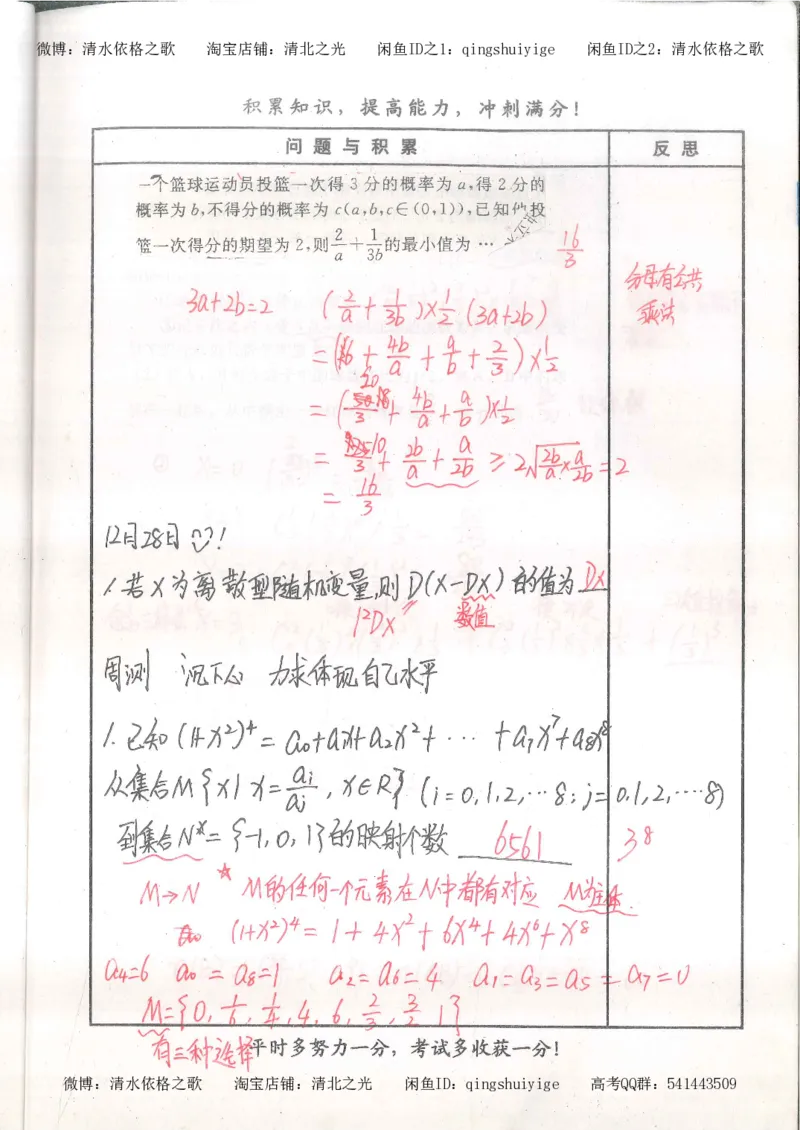 微博：清水依格之歌 淘宝店铺：清北之光 闲鱼ID之1：qingshuiyige 闲鱼ID之2：清水依格之歌
积累知识，提高能力，冲刺满分！
问题与积累 反思
一个篮球运动员投篮一次得3分的概率为a,得2分的
概率为b,不得分的概率为c(a,b,c∈(0,1)),已知他投
篮一次得分的期望为2,则2/a+1/3b的最小值为… 16/3
分母有公共
乘法
3a+2b=2 (2/a+1/3b)×1/2(3a+2b)
=(6+4b/a+a/b+2/3)×1/2
=(20/3+4b/a+a/b)×1/2
=10/3+2b/a+a/2b≥2√(2b/a×a/2b)=2
=16/3
12月28日!
1.若X为离散型随机变量,则D(X-DX)的值为 DX
1²DX 数值
周测 沉下心 力求体现自己水平
1.已知(1+X²)⁴=a₀+a₁X+a₂X²+…+a₇X⁷+a₈X⁸
从集合M{X|X=ai/aj,X∈R}(i=0,1,2,…8;j=0,1,2,…8)
到集合N*={-1,0,1}的映射个数 6561 3⁸
M→N ☆ M的任何一个元素在N中都有对应 M当主体.
(1+X²)⁴=1+4X²+6X⁴+4X⁶+X⁸
a₄=6 a₀=a₈=1 a₂=a₆=4 a₁=a₃=a₅=a₇=0
M={0,1/6,1/4,4,6,2/3,3/2,1}
有三种选择
平时多努力一分，考试多收获一分！
微博：清水依格之歌 淘宝店铺：清北之光 闲鱼ID：qingshuiyige 高考QQ群：541443509